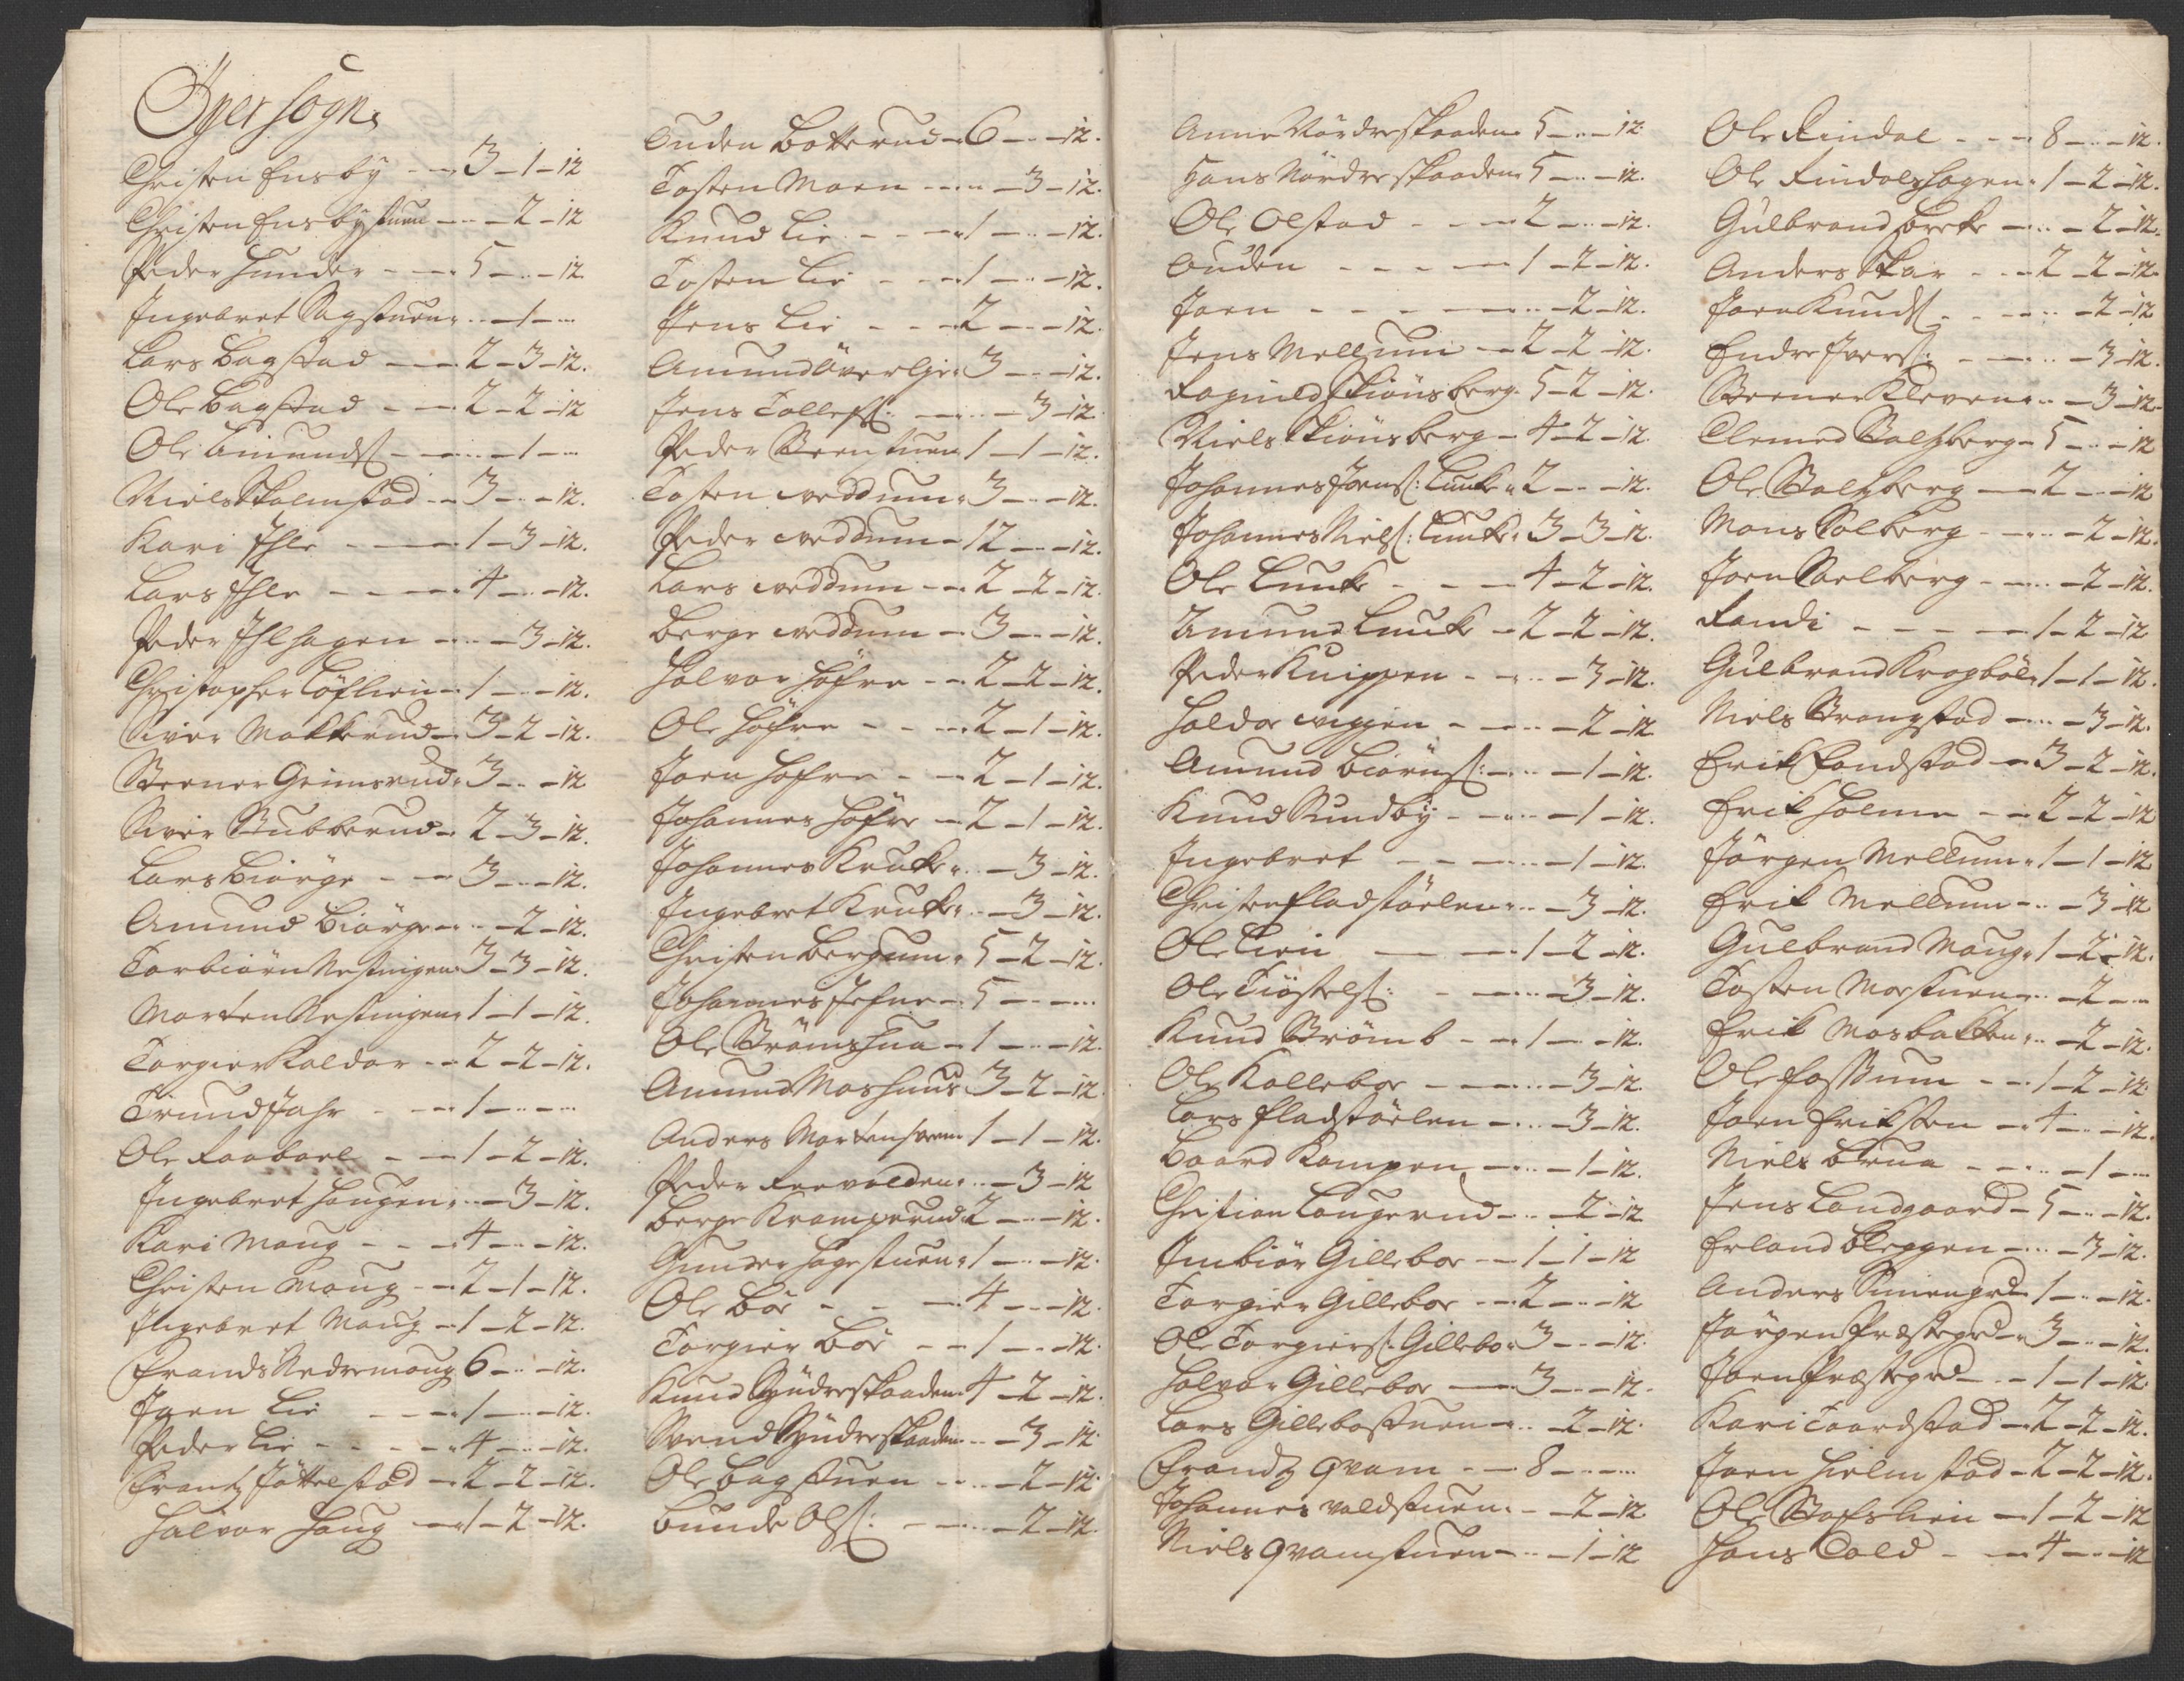 Øyer Sogn
Christen Ensby - - 3 - 1 - 12
Christen Ensbystuen - - 2 - 12
Peder Hunder - - 5 - .. - 12
Ingebret Bagstuen .. - 1 - ..
Lars Bagstad - - 2 - 3 - 12.
Ole Bagstad - - 2 - 2 - 12
Ole Amunds: - - .. - 1 - ..
Niels Skalmstad - 3 - .. - 12.
Kari Ihle - - 1 - 3 - 12.
Lars Ihle - - 4 - .. - 12.
Peder Ihlhagen - .. - 3 - 12.
Christopher Løflien - 1 - .. - 12.
Siver Mokkerud - 3 - 2 - 12.
Steener Grimsrud - 3 - .. - 12
Siver Stubberud - 2 - 3 - 12.
Lars Biørge - - 3 - .. - 12.
Amund Biørge - .. - 2 - 12.
Torbiørn Nestingen 3 - 3 - 12.
Morten Nestingen 1 - 1 - 12.
Torgier Kaldor - - 2 - 2 - 12.
Trund Jahr - - 1 - .. - ..
Ole Raabøel - - 1 - 2 - 12.
Ingebret Haugen .. - 3 - 12.
Kari Moug - - 4 - .. - 12.
Christen Moug - - 2 - 1 - 12.
Ingebret Moug - 1 - 2 - 12.
Frands Nedremoug 6 - .. - 12.
Joen Lie - - 1 - .. - 12.
Peder Lie - - - 4 - .. - 12.
Frantz Jøttelstad - 2 - 2 - 12.
Halvor Haug - 1 - 2 - 12.
Auden Botterud - 6 - .. - 12.
Tosten Moen - - .. - 3 - 12.
Knud Lie - - 1 - .. - 12.
Tosten Lie - - 1 - .. - 12.
Jens Lie - - 2 - .. - 12.
Amund Øverlie 3 - .. - 12.
Jens Tollefs: - .. - 3 - 12
Peder Steenstuen 1 - 1 - 12.
Tosten Weddum 3 - .. - 12.
Peder Weddum - 12 - .. - 12.
Lars Weddum - - 2 - 2 - 12.
Berge Weddum - 3 - .. - 12.
Halvor Høfre - - 2 - 2 - 12.
Ole Høfre - - - 2 - 1 - 12.
Joen Høfre - - 2 - 1 - 12.
Johannes Høfre - 2 - 1 - 12.
Johannes Kruke .. - 3 - 12.
Ingebret Kruke .. - 3 - 12.
Christen Bergum 5 - 2 - 12.
Johannes Jefne - 5 - .. - ..
Ole Strømshua - 1 - .. - 12.
Amund Moshuus 3 - 2 - 12.
Anders Mortensveen 1 - 1 - 12.
Peder Reevolden .. - 3 - 12
Berge Kramperud 2 - .. - 12.
Gunder Hagestuen 1 - .. - 12.
Ole Bøe - - - 4 - .. - 12.
Torgier Bøe - - 1 - .. - 12.
Knud Syndreskaaden 4 - 2 - 12.
Svend Syndreskaaden .. - 3 - 12.
Ole Bagstuen - .. - 2 - 12.
Bunde Ols: - .. - 2 - 12.
Anne Nørdreskaaden 5 - .. - 12.
Hans Nørdreskaaden 5 - .. - 12.
Ole Olstad - - - 2 - .. - 12.
Auden - - - - 1 - 2 - 12.
Joen - - - - .. - 2 - 12.
Jens Mellum - 2 - 2 - 12.
Ragnild Skiønsberg 5 - 2 - 12.
Niels Skiønsberg - 4 - 2 - 12.
Johannes Joens: Lunke 2 - .. - 12.
Johannes Niels: Lunke 3 - 3 - 12.
Ole Lunke - - - 4 - 2 - 12.
Amund Lunke - 2 - 2 - 12.
Peder Knippen - .. - 3 - 12.
Haldor Wigjen - - .. - 2 - 12
Amund Biørns: - .. - 1 - 12.
Knud Sundby - - .. - 1 - 12.
Ingebret - - - .. - 1 - 12.
Christen Fladstøelen .. - 3 - 12.
Ole Lien - - 1 - 2 - 12.
Ole Kiøstels: - - .. - 3 - 12.
Knud Strømb - - 1 - .. - 12.
Ole Kolleboe - - .. - 3 - 12.
Lars Fladstøelen - .. - 3 - 12.
Baard Kampen - .. - 1 - 12.
Christian Laugerud - .. - 2 - 12
Imbiør Gilleboe - - 1 - 1 - 12
Torgier Gilleboe - - 2 - .. - 12
Ole Torgiers: Gilleboe 3 - .. - 12.
Halvor Gilleboe - - 3 - .. - 12.
Lars Gillebostuen - .. - 2 - 12.
Frandtz Qvam - - 8 - .. - ..
Johannes Voldstuen - .. - 2 - 12.
Niels Qvamstuen - .. - 1 - 12
Ole Rindal - - - 8 - .. - 12.
Ole Rindalshagen 1 - 2 - 12.
Gulbrand Brekke - .. - 2 - 12.
Anders Skar - - 2 - 2 - 12.
Joen Knuds: - - .. - 2 - 12
Endre Ivers: - - .. - 3 - 12.
Steener Kleven .. - 3 - 12.
Clemed Stalsberg - 5 - .. - 12
Ole Stalsberg - - 2 - .. - 12
Mons Solberg - .. - 2 - 12.
Joen Soelberg - .. - 2 - 12.
Randi - - - - 1 - 2 - 12
Gulbrand Krogbøl 1 - 1 - 12.
Niels Strangstad - .. - 3 - 12.
Erik Sandstad - 3 - 2 - 12.
Erik Holme - - 2 - 2 - 12
Jørgen Mellum 1 - 1 - 12
Erik Mellum - .. - 3 - 12
Gulbrand Moug 1 - 2 - 12.
Tosten Moestuen .. - 2 - ..
Erik Mosbakken .. - 2 - 12.
Ole Fossum - - 1 - 2 - 12.
Joen Erikssen - 4 - .. - 12.
Niels Brua - - .. - 1 - ..
Jens Landgaard - 5 - .. - 12.
Erland Bleggen - .. - 3 - 12.
Anders Simengrd 1 - .. - 12.
Jørgen Præstegrd 3 - .. - 12.
Joen Præstegrd - - 1 - 1 - 12.
Kari Taardstad - 2 - 2 - 12.
Joen Hielmstad - 2 - 2 - 12.
Ole Stafslien - 1 - 2 - 12
Hans Bold - - 4 - .. - 12